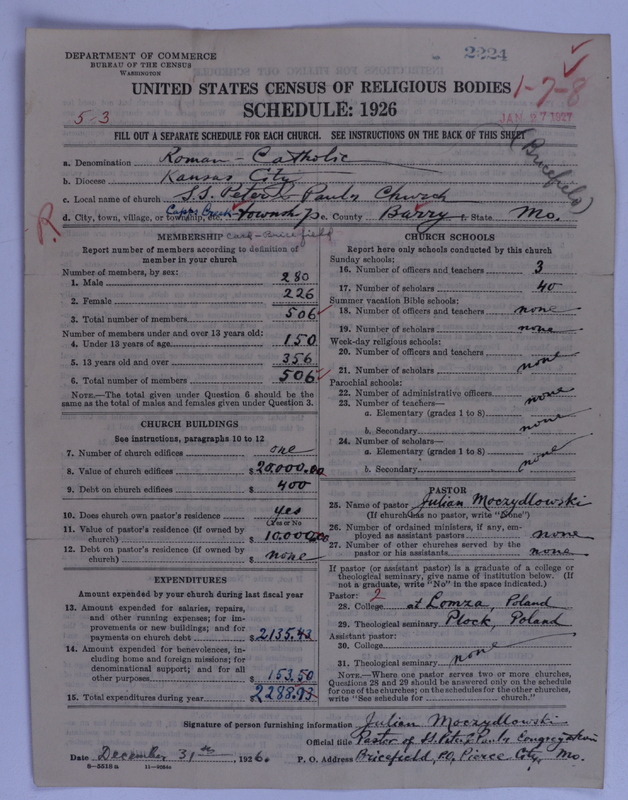 DEPARTMENT OF COMMERCE
BUREAU OF THE CENSUS
WASHINGTON
2224
UNITED STATES CENSUS OF RELIGIOUS BODIES
1-7-8
SCHEDULE: 1926
5-3
JAN 27 1927
FILL OUT A SEPARATE SCHEDULE FOR EACH CHURCH. SEE INSTRUCTIONS ON THE BACK OF THIS SHEET
(Bricefield)
a. Denomination Roman-Catholic
b. Diocese Kansas City
c. Local name of church S.S. Peter & Pauls Church
d. City, town, village, or township, etc. Capps Creek township e. County Barry f. State Mo.
R
MEMBERSHIP
Report number of members according to definition of
member in your church
Number of members, by sex:
1. Male 280
2. Female 226
3. Total number of members 506
Number of members under and over 13 years old:
4. Under 13 years of age 150
5. 13 years old and over 356
6. Total number of members 506
NOTE.—The total given under Question 6 should be the
same as the total of males and females given under Question 3.
CHURCH BUILDINGS
See instructions, paragraphs 10 to 12
7. Number of church edifices one
8. Value of church edifices $20,000.00
9. Debt on church edifices $400
10. Does church own pastor's residence yes
(Yes or No
11. Value of pastor's residence (if owned by
church) $10,000.00
12. Debt on pastor's residence (if owned by
church) $none
EXPENDITURES
Amount expended by your church during last fiscal year
13. Amount expended for salaries, repairs,
and other running expenses; for im-
provements or new buildings; and for
payments on church debt $2135.43
14. Amount expended for benevolences, in-
cluding home and foreign missions; for
denominational support; and for all
other purposes $153.50
15. Total expenditures during year $2288.93
CHURCH SCHOOLS
Report here only schools conducted by this church
Sunday schools:
16. Number of officers and teachers 3
17. Number of scholars 40
Summer vacation Bible schools:
18. Number of officers and teachers none
19. Number of scholars none
Week-day religious schools:
20. Number of officers and teachers
21. Number of scholars none
Parochial schools:
22. Number of administrative officers none
23. Number of teachers—
a. Elementary (grades 1 to 8)
b. Secondary none
24. Number of scholars—
a. Elementary (grades 1 to 8) none
b. Secondary none
PASTOR
25. Name of pastor Julian Moczydlowski
(If church has no pastor, write "None")
26. Number of ordained ministers, if any, em-
ployed as assistant pastors none
27. Number of other churches served by the
pastor or his assistants none
If pastor (or assistant pastor) is a graduate of a college or
theological seminary, give name of institution below. (If
not a graduate, write "No" in the space indicated.)
Pastor: 2
28. College at Lomza, Poland
29. Theological seminary Plock, Poland
Assistant pastor:
30. College
31. Theological seminary none
NOTE.—Where one pastor serves two or more churches,
Questions 28 and 29 should be answered only on the schedule
for one of the churches; on the schedules for the other churches,
write "See schedule for church."
Signature of person furnishing information Julian Moczydlowski
Official title Pastor of SS Peter & Pauls Congregation
Date December 31st, 1926. P. O. Address Bricefield, PO, Pierce City, Mo.
8-5518a 11-9084a